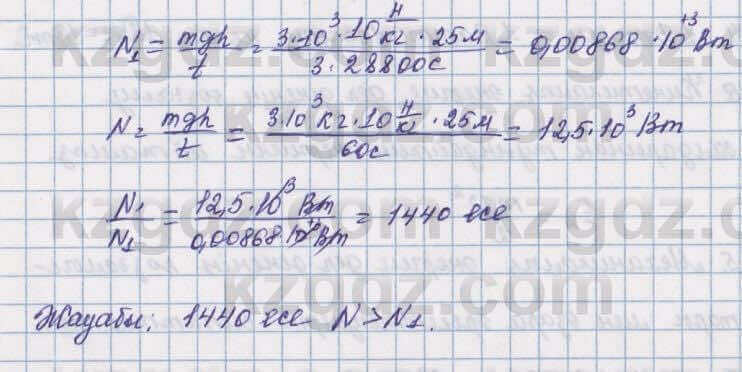 N₁ = mgh/t = 3·10³·10 Н/кг · 25м / 3·28800с = 0,00868·10⁺³ Вт
N = mgh/t = 3·10³кг·10 Н/кг · 25м / 60с = 12,5·10³ Вт
N₁/N₁ = 12,5·10³ Вт / 0,00868·10⁺³ Вт = 1440 есе
Жауабы: 1440 есе N>N₁.
kzgdz.com